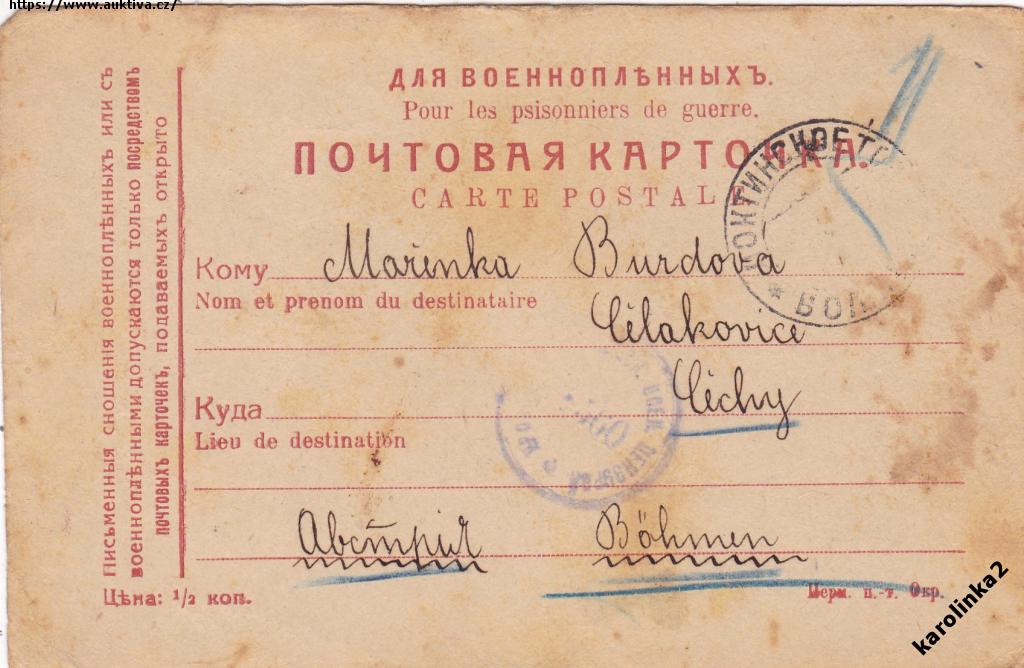 https://www.auktiva.cz/
ДЛЯ ВОЕННОПЛѢННЫХЪ.
Pour les psisonniers de guerre.
ПОЧТОВАЯ КАРТОЧКА.
CARTE POSTALE
Кому Mařenka Burdova
Nom et prenom du destinataire
Čélakovice
Čechy
Куда
Lieu de destination
Австрия Böhmen
Письменныя сношенія военноплѣнныхъ или съ
военноплѣнными допускаются только посредствомъ
почтовыхъ карточекъ, подаваемыхъ открыто
Цѣна: 1/2 коп.
Перм. п.-т. Окр.
karolinka2